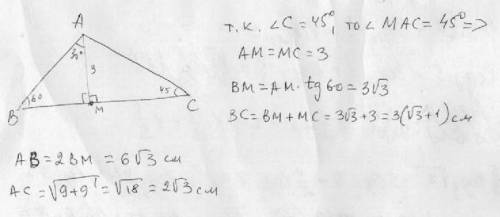 A
30°
3
60
45
B
M
C
т.к. ∠C = 45°, то ∠MAC = 45° ⇒
AM = MC = 3
BM = AM · tg 60 = 3√3
BC = BM + MC = 3√3 + 3 = 3(√3 + 1) см
AB = 2BM = 6√3 см
AC = √9+9 = √18 = 2√3 см